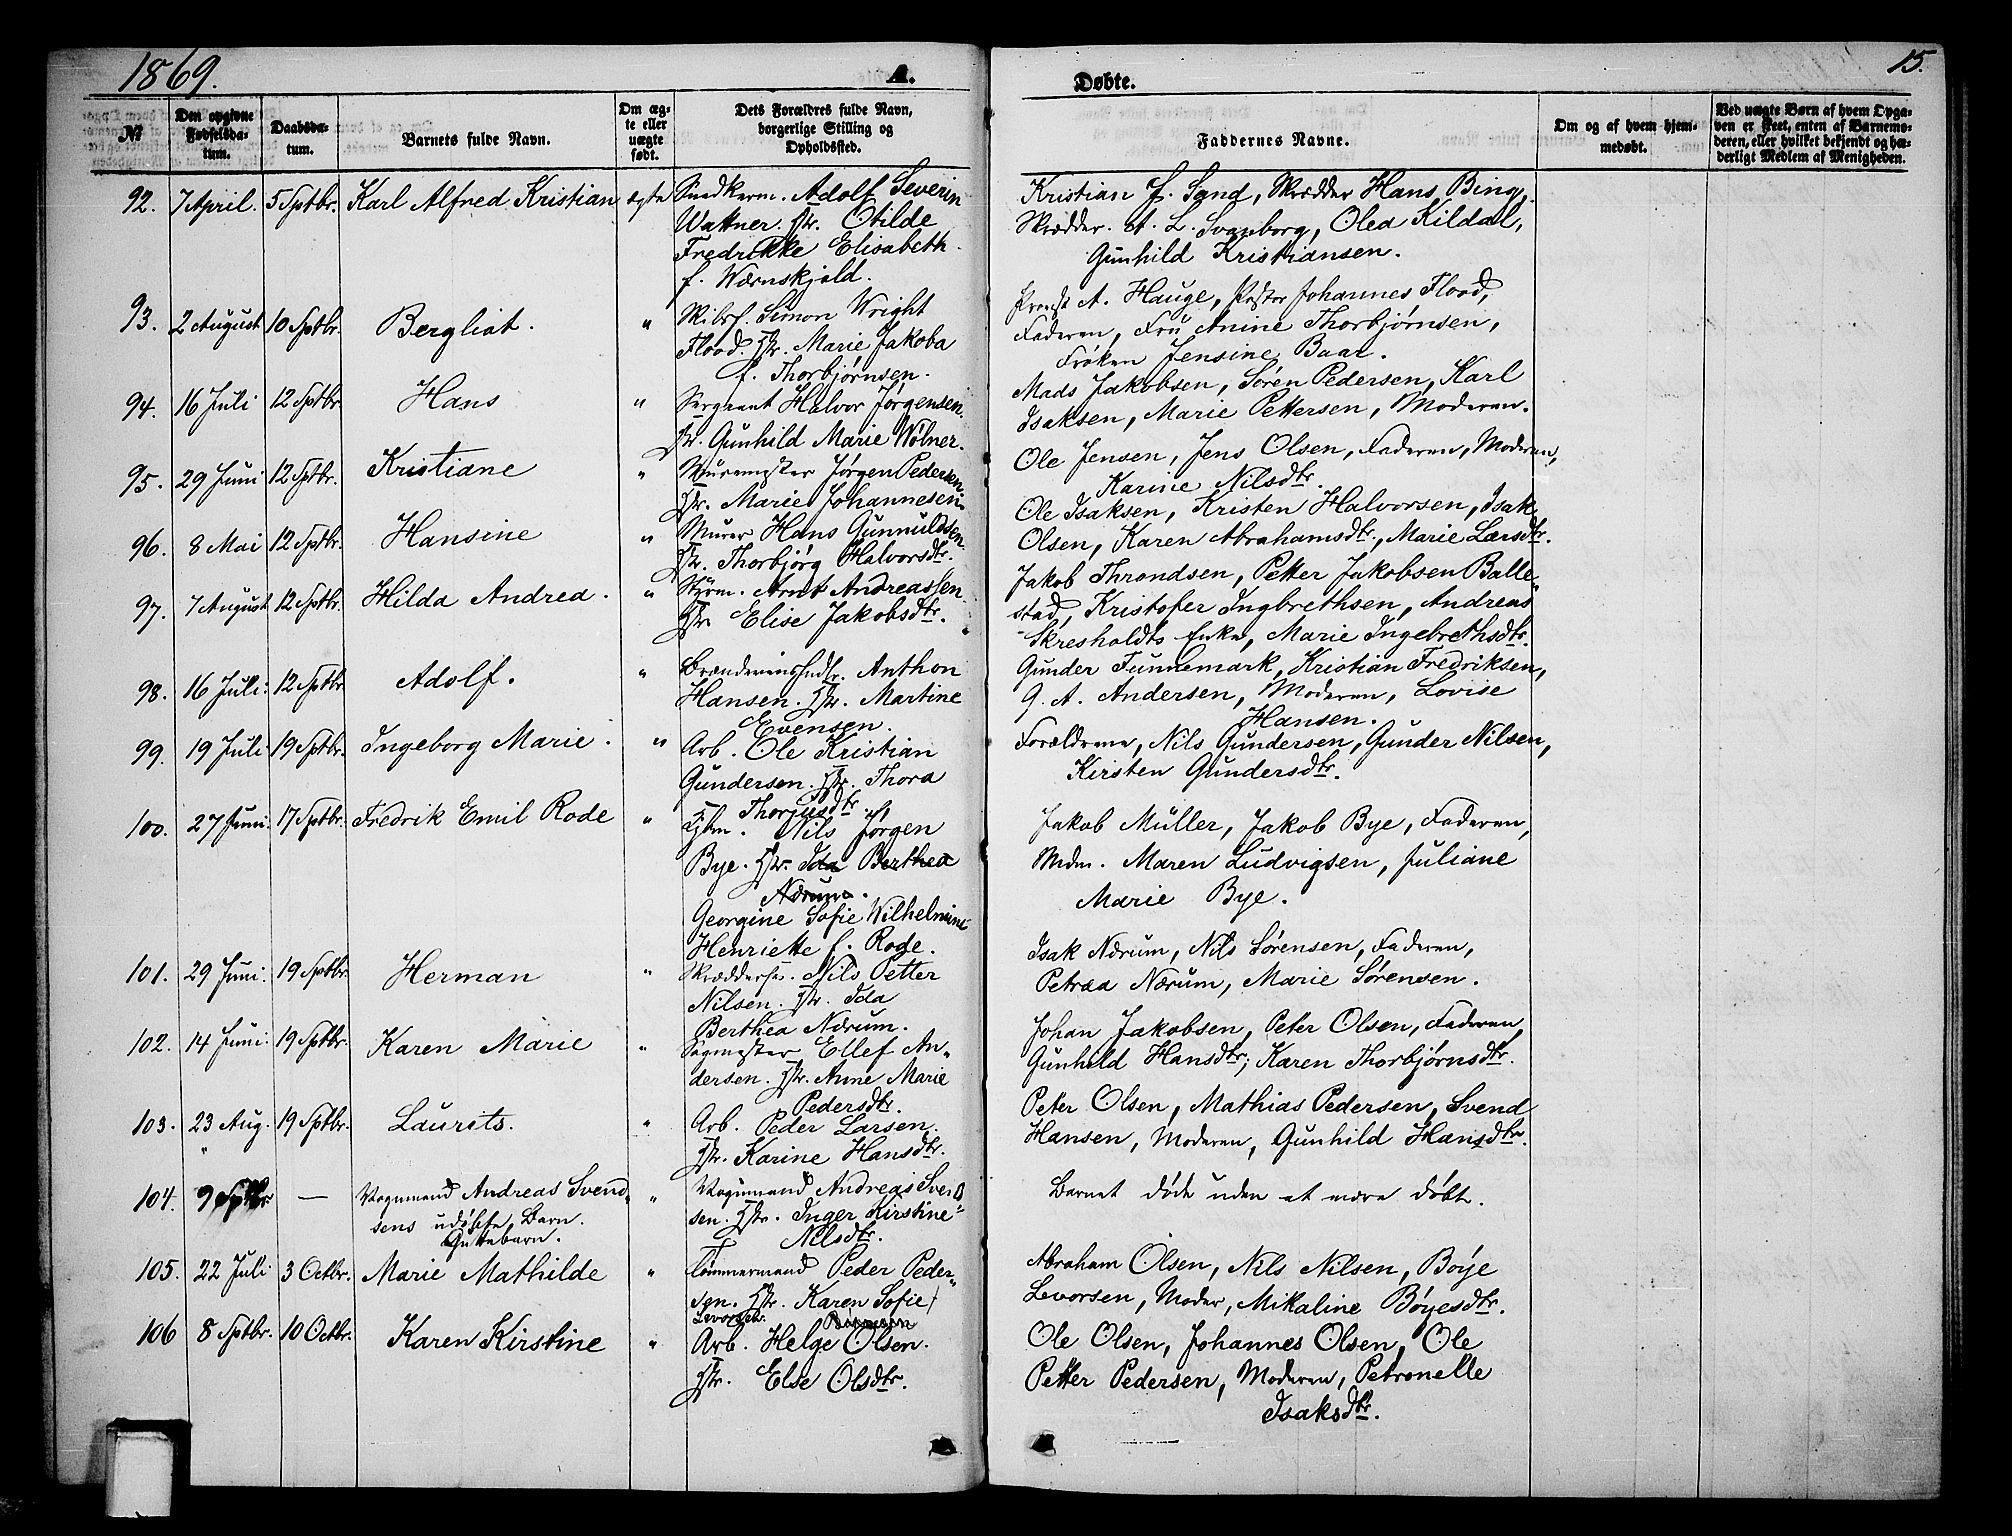 1869.
A.
Døbte.
15.
№
Den opgivne Fødselsdatum.
Daabsdatum.
Barnets fulde Navn.
Om ægte eller uægte født.
Dets Forældres fulde Navn, borgerlige Stilling og Opholdssted.
Faddernes Navne.
Om og af hvem hjemmedøbt.
Ved uægte Børn af hvem Opgaven er skeet, enten af Barnemoderen, eller hvilket bekjendt og hæderligt Medlem af Menigheden.
92. 7 April. 5 Sptbr. Karl Alfred Kristian ægte Snedkerm. Adolf Severin
Wattner. Hstr. Otilde
Fredrikke Elisabeth
f. Wærnskjold.
Kristian F. Sand, Skrædder Hans Bing,
Skrædder. A. L. Svanborg, Olea Kildal,
Gunhild Kristiansen.
93. 2 August 10 Sptbr. Bergliat. " Skibsf. Simon Wright
Flood. Hstr. Marie Jakoba
f. Thorbjørnsen.
Provst A. Hauge, Pastor Johannes Flood,
Faderen, Fru Anine Thorbjørnsen,
Frøken Jensine Baar.
94. 16 Juli 12 Sptbr. Hans " Sergeant Halvor Jørgensen.
Hstr. Gunhild Marie Wølner.
Mads Jakobsen, Søren Pedersen, Karl
Isaksen, Marie Pettersen, Moderen.
95. 29 Juni 12 Sptbr. Kristiane " Murmester Jørgen Pedersen
Hstr. Marie Johannesen.
Ole Jensen, Jens Olsen, Faderen, Moderen,
Karine Nilsdtr.
96. 8 Mai 12 Sptbr. Hansine " Murer Hans Gunnuldsen
Hstr. Thorbjørg Halvorsdtr.
Ole Isaksen, Kristen Halvorsen, Isak
Olsen, Karen Abrahamsdtr., Marie Larsdtr.
97. 7 August 12 Sptbr. Hilda Andrea. " Styrm. Arnt Andreassen
Hstr Elise Jakobsdtr.
Jakob Throndsen, Petter Jakobsen Balle-
stad, Kristofer Ingbrethsen, Andreas
Skresholdts Enke, Marie Ingebrethsdtr.
98. 16 Juli. 12 Sptbr Adolf. " Brændevinshndlr. Anthon
Hansen. Hstr. Martine
Evensen.
Gunder Tunnemark, Kristian Fredriksen,
G. A. Andersen, Moderen, Lovise
Hansen.
99. 19 Juli 19 Sptbr. Ingeborg Marie. " Arb. Ole Kristian
Gundersen. Hstr. Thora
Thorjusdtr
Forældrene, Nils Gundersen, Gunder Nilsen,
Kirsten Gundersdtr.
100. 27 Juni. 17 Sptbr. Fredrik Emil Rode " Hdlm. Nils Jørgen
Bye. Hstr. Ida Berthea
Nærum.
Georgine Sofie Wilhelmine
Henriette f. Rode.
Jakob Müller, Jakob Bye, Faderen,
Mdm. Maren Ludvigsen, Juliane
Marie Bye.
101. 29 Juni. 19 Sptbr. Herman " Skrædders. Nils Petter
Nilsen. Hstr. Ida
Berthea Nærum.
Isak Nærum, Nils Sørensen, Faderen,
Petræa Nærum, Marie Sørensen.
102. 14 Juni. 19 Sptbr. Karen Marie " Sagmester Ellef An-
dersen. Hstr. Anne Marie
Pedersdtr.
Johan Jakobsen, Peter Olsen, Faderen,
Gunhild Hansdtr, Karen Thorbjørnsdtr.
103. 23 Aug. 19 Sptbr. Laurits. " Arb. Peder Larsen.
Hstr. Karine Hansdtr.
Peter Olsen, Mathias Pedersen, Svend
Hansen, Moderen, Gunhild Hansdtr.
104. 9 Sptbr — Vognmand Andreas Svend-
sens udøbte Barn.
Guttebarn.
" Vognmand Andreas Svend
sen. Hstr. Inger Kirstine
Nilsdtr.
Barnet døde uden at være døbt.
105. 22 Juli 3 Octbr. Marie Mathilde " Tømmermand Peder Peder-
sen. Hstr. Karen Sofie
Levorsdtr.
Abraham Olsen, Nils Nilsen, Bøje
Levorsen, Moder, Mikaline Bøyesdtr.
106 8 Sptbr. 10 Octbr. Karen Kirstine " Arb. Helge Olsen.
Hstr. Else Olsdtr.
Ole Olsen, Johannes Olsen, Ole
Petter Pedersen, Moderen, Petronelle
Isaksdtr.